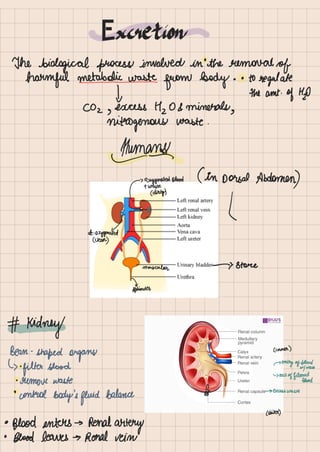 Excretion
The biological process involved in the removal of
harmful metabolic waste from body. • to regulate
the amt. of H2O
CO2, excess H2O & minerals,
nitrogenous waste.
Humans
(In Dorsal Abdomen)
→ oxygenated blood
+ waste
(dirty)
Left renal artery
Left renal vein
Left kidney
Aorta
Vena cava
Left ureter
Urinary bladder → Store
Urethra
muscular
(clean)
# Kidney
Bean-shaped organs
• filter blood
• remove waste
• control body's fluid balance
BYJU'S
Renal column
Medullary
pyramid
Calyx (inner)
Renal artery → entry of blood
Renal vein
Pelvis → exit of filtered
blood
Ureter
Renal capsule →
Cortex
(outer)
• Blood enters → Renal artery
• Blood leaves → Renal vein